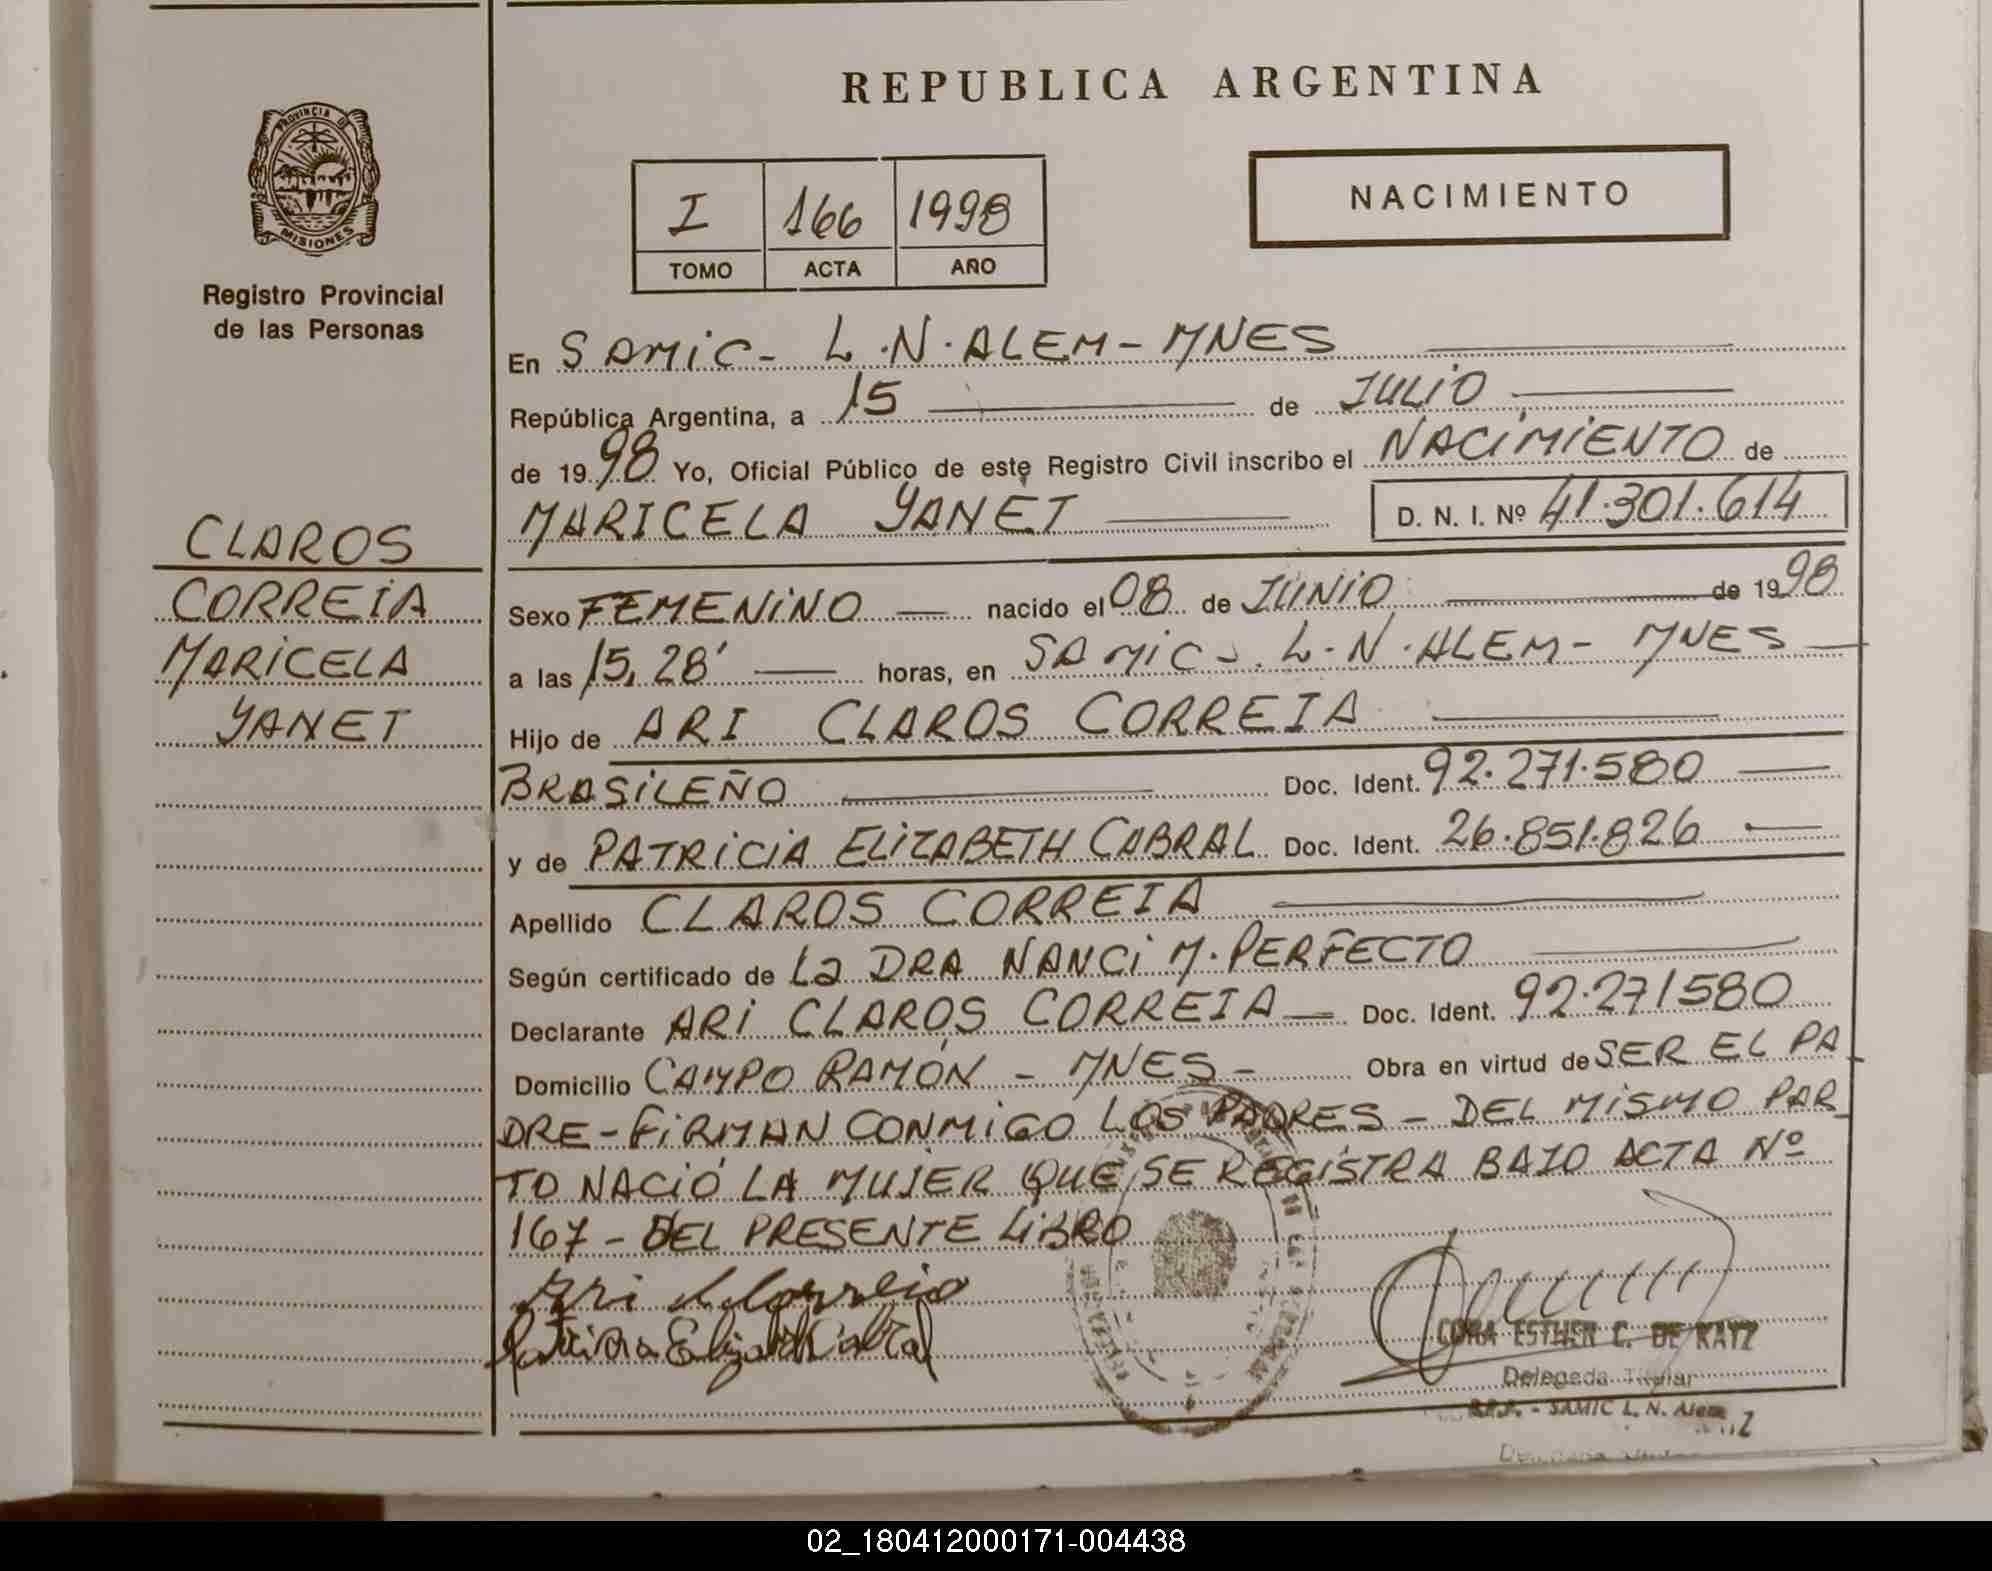 REPUBLICA ARGENTINA
PROVINCIA DE
MISIONES
Registro Provincial
de las Personas
I 166 1998
TOMO ACTA AÑO
NACIMIENTO
En SAMIC- L.N.ALEM-MNES
República Argentina, a 15 de JULIO
de 1998 Yo, Oficial Público de este Registro Civil inscribo el NACIMIENTO de
MARICELA YANET D. N. I. Nº 41.301.614
CLAROS
CORREIA
MARICELA
YANET
Sexo FEMENINO nacido el 08 de JUNIO de 1998
a las 15,28' horas, en SAMIC-L.N.ALEM-MNES
Hijo de ARI CLAROS CORREIA
BRASILEÑO Doc. Ident. 92.271.580
y de PATRICIA ELIZABETH CABRAL Doc. Ident. 26.851.826
Apellido CLAROS CORREIA
Según certificado de La DRA NANCI M. PERFECTO
Declarante ARI CLAROS CORREIA Doc. Ident. 92.271580
Domicilio CAMPO RAMÓN - MNES - Obra en virtud de SER EL PA
DRE-FIRMAN CONMIGO LOS PADRES - DEL MISMO PAR
TO NACIÓ LA MUJER QUE SE REGISTRA BAJO ACTA Nº
167 - DEL PRESENTE LIBRO
Ari C Correia
Patricia Elizabeth Cabral
CORA ESTHER C. DE KATZ
Delegada Titular
R.P.P. - SAMIC L. N. Alem
02_180412000171-004438